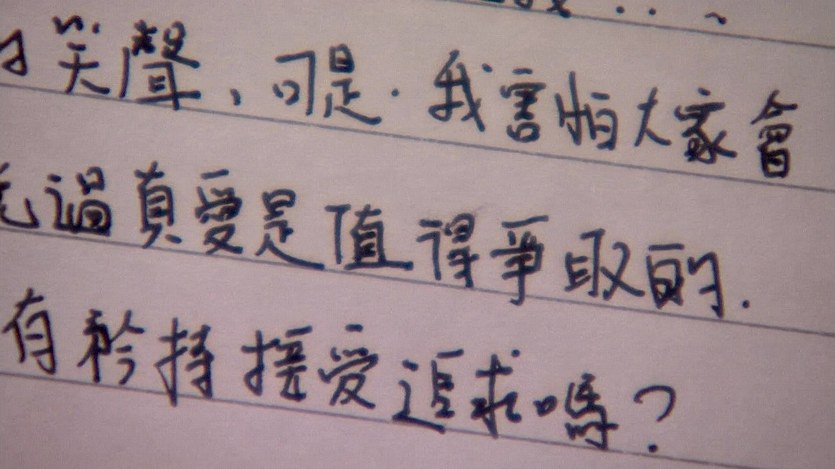 笑聲，可是．我害怕大家會
過真愛是值得爭取的．
有矜持接受追求嗎？